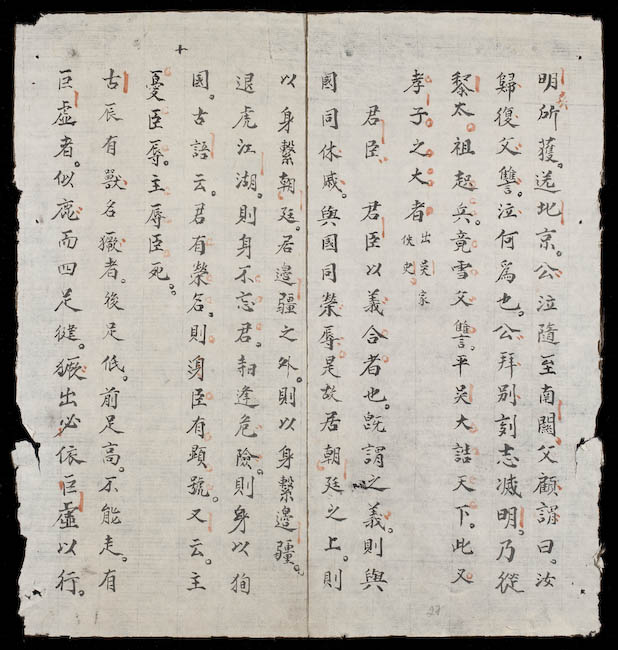 明所獲。送北京。公泣隨至南關。父顧謂曰。汝
歸復父讐。泣何爲也。公拜別刻志滅明。乃從
黎太祖起兵。竟雪父讐。平吴大誥天下。此又
孝子之大者 出吴家
佚史
君臣 君臣以義合者也。旣謂之義。則與
國同休戚。與國同榮辱。是故居朝廷之上。則
以身繫朝廷。居邉疆之外。則以身繫邉疆。
退處江湖。則身不忘君。逢危險。則身以徇
國。古語云。君有榮名。則臣有顯號。又云。主
憂臣辱。主辱臣死。
古辰有獸名獗者。後足低。前足高。不能走。有
巨虛者。似鹿而四足。獗出必依巨虛以行。
28